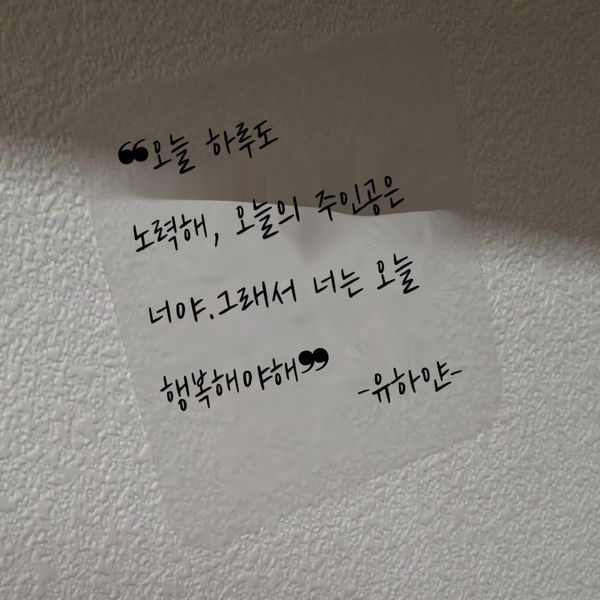 ❝오늘 하루도
노력해, 오늘의 주인공은
너야.그래서 너는 오늘
행복해야해❞
-유하얀-